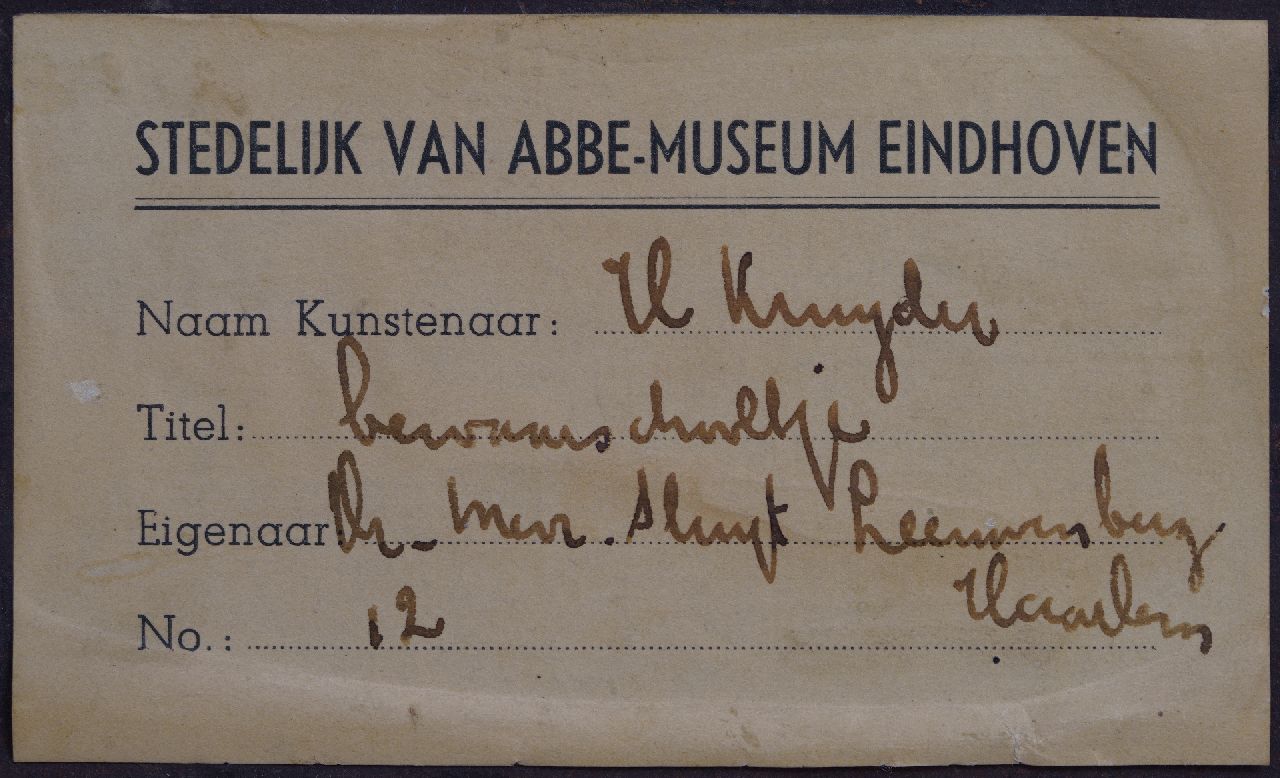 STEDELIJK VAN ABBE-MUSEUM EINDHOVEN
Naam Kunstenaar: H Kruyder
Titel: bewaarschooltje
Eigenaar: Dr- Mevr. Sluyt Leeuwenberg
Haarlem
No.: 12